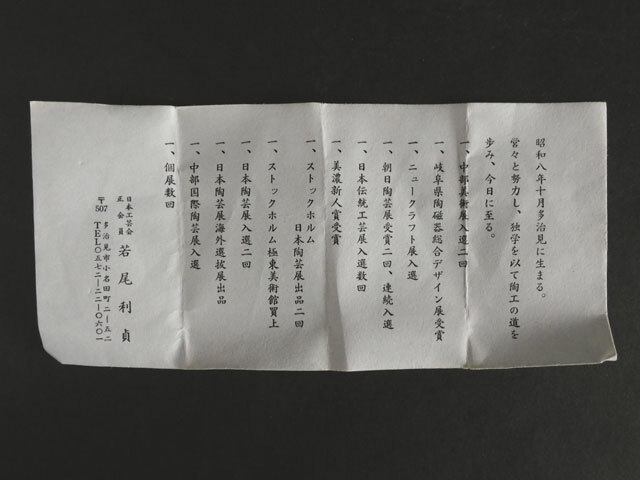 昭和八年十月多治見に生まる。
営々と努力し、独学を以て陶工の道を
歩み、今日に至る。
一、中部美術展入選二回
一、岐阜県陶磁器総合デザイン展受賞
一、ニュークラフト展入選
一、朝日陶芸展受賞二回、連続入選
一、日本伝統工芸展入選数回
一、美濃新人賞受賞
一、ストックホルム
日本陶芸展出品二回
一、ストックホルム極東美術館買上
一、日本陶芸展入選二回
一、日本陶芸展海外選抜展出品
一、中部国際陶芸展入選
一、個展数回
日本工芸会
正会員 若尾利貞
〒507 多治見市小名田町二ー五二
TEL〇五七二ー二二ー〇六〇一